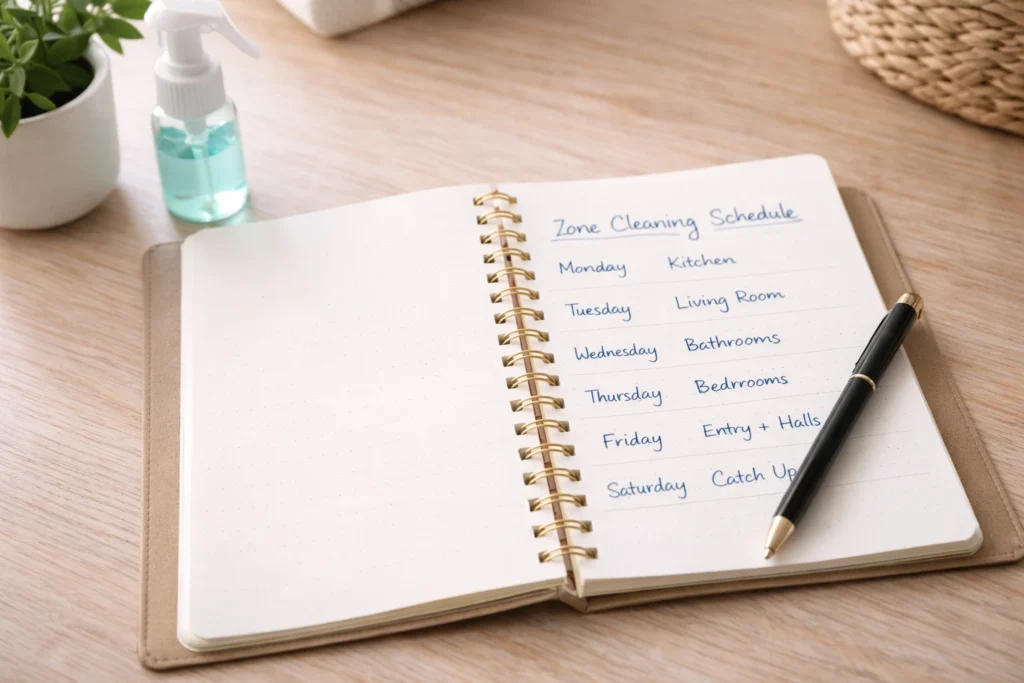 Zone Cleaning Schedule
Monday Kitchen
Tuesday Living Room
Wednesday Bathrooms
Thursday Bedrrooms
Friday Entry + Halls
Saturday Catch Up